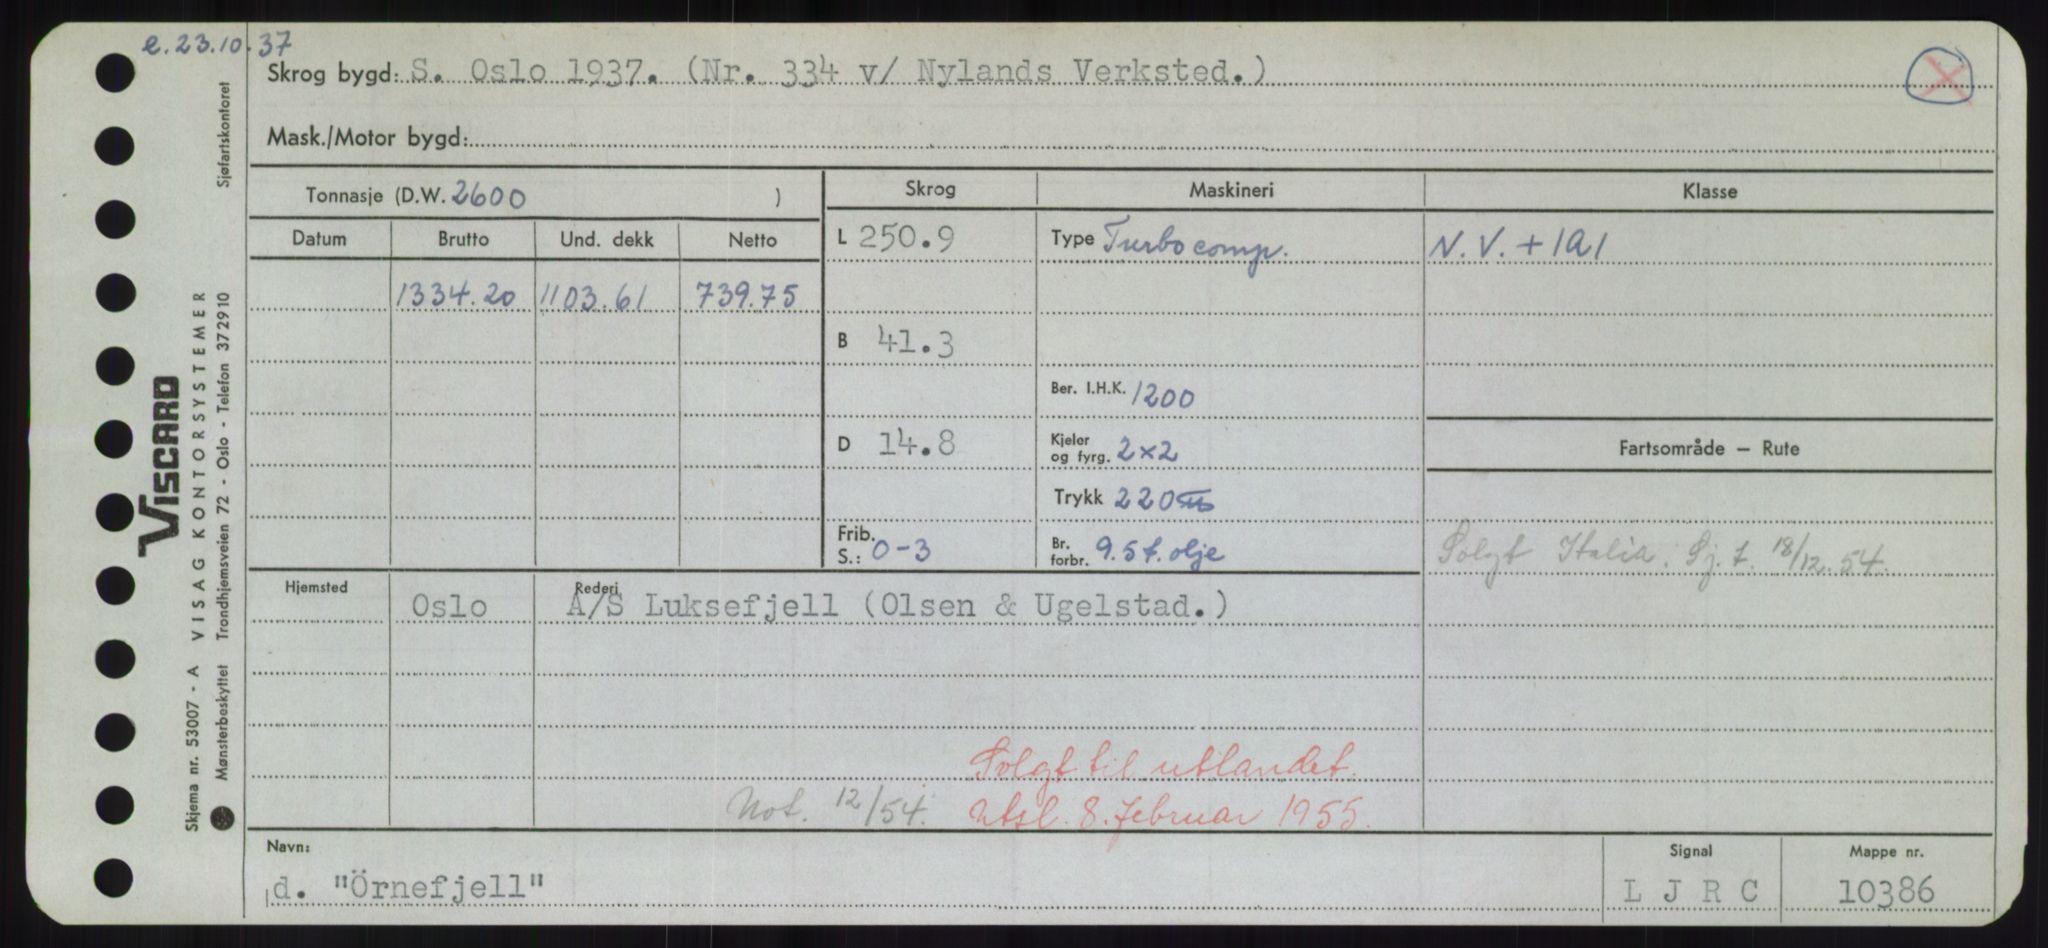 e. 23.10.37
Skrog bygd: S. Oslo 1937. (Nr. 334 v/ Nylands Verksted.)
Mask./Motor bygd:
Tonnasje (D.W. 2600 )
Skrog
Maskineri
Klasse
Datum Brutto Und. dekk Netto
1334.20 1103.61 739.75
L 250.9
B 41.3
D 14.8
Frib.
S.: 0-3
Type Turbocomp.
Ber. I.H.K. 1200
Kjeler
og fyrg. 2×2
Trykk 220 lb
Br.
forbr. 9.5 t. olje
N.V. + 1A1
Fartsområde — Rute
Solgt Italia. Sj. t. 18/12.54.
Hjemsted
Rederi
Oslo A/S Luksefjell (Olsen & Ugelstad.)
Solgt til utlandet.
Not. 12/54. Utsl. 8. februar 1955.
Navn:
d. "Örnefjell"
Signal
L J R C
Mappe nr.
10386
VISCARD
Skjema nr. 53007 - A VISAG KONTORSYSTEMER
Mønsterbeskyttet Trondhjemsveien 72 - Oslo - Telefon 372910 Sjøfartskontoret